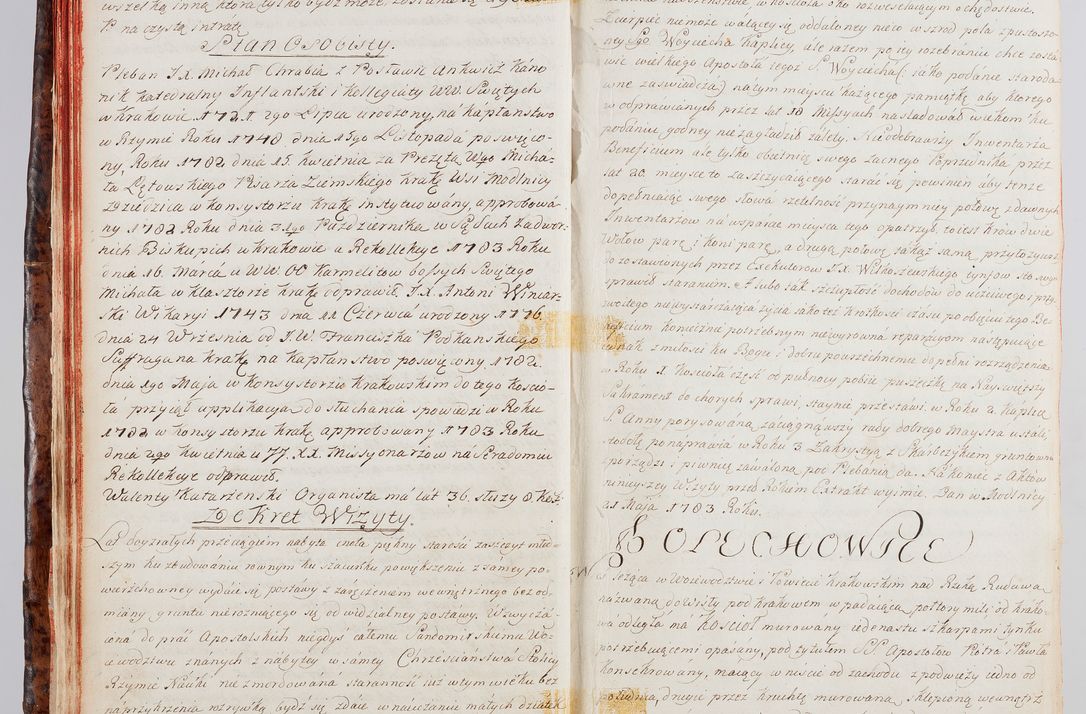 wszelką inną która tylko bydź może zostania się
P na czystą intratę
Stan Osobisty.
Pleban J.X. Michał Chrabia z Posławic Ankwicz Kano
nik Katedralny Inflantski i Kollegiaty WW. Swiętych
w Krakowie 1721 2go Lipca urodzony, na kapłanstwo
w Rzymie Roku 1748 dnia 15go Listopada poswięco-
ny, Roku 1782 dnia 15. kwietnia za Prezętą Wgo Micha-
ła Łętowskiego Pisarza Ziemskiego Krakę Wsi Modlnicy
Dziedzica w konsystorzu krakę instytuowany, approbowa-
ny 1782 Roku dnia 3.go Pazdziernika w Salach Zadwor-
nich Biskupich w Krakowie a Rekollekcye 1783 Roku
dnia 16. Marca u WW OO Karmelitow bossych Swiętego
Michała w klasztorze krakę odprawił. J.X. Antoni Winiar-
ski Wikaryi 1743 dnia 11 Czerwca urodzony 1776.
dnia 24 Wrzesnia od J.W. Franciszka Podkanskiego
Suffragana krakę na kapłanstwo poswięcony 1782.
dnia 1go Maja w konsystorzu krakowskim do tego koscio-
ła przyiął applikacya do słuchania spowiedzi w Roku
1782 w konsystorzu krakę approbowany 1783 Roku
dnia 2go kwietnia u JJ. XX. Missyonarzow na Stradomiu
Rekollekcye odprawił.
Walenty Katarzenski Organista má lát 36. słuzy 8
Dekret Wizyty.
Lat doyzrałych przeciągiem nabyta cnota piękny starosci zaszczyt młod-
szym ku zbudowaniu rownym ku szacunku powiększenie z samey po-
wierzchowney wydaie się postawy z załączeniem wewnętrznego bez od-
miany gruntu nieroznuiącego się od widzialney postawy. Wzwycza-
iona do prac Apostolskich niegdys cáłemu Sandomirskiemu Wo-
iewodztwu znanych z nabytey w sámey Chrzescianstwa Stolicy
Rzymie Nauki niezmordowaná staranność iuz w tym wieku bez
naprzykrzenia rozrywką bydz się zdaie w nauczaniu małych dziatek
w kosciola oko rozweselaiącym ochędostwie.
Zcierpieć niemoże walącey się oddaloney nieco wszrod pola spustoszo-
ney Sgo Woyciecha Kaplicy, ale razem po iey rozebraniu chce zosta-
wić wielkiego Apostoła tegoz S. Woyciecha (iako podanie staroda-
wne zaswiadcza) na tym mieyscu każącego pamiątkę aby ktorego
w odprawianych przez lat 18 Missyach nasladował wiekom ku
podaniu godney niezagładził zalety. Nieodebrawszy Inwentarza
Beneficium ale tylko obietnicę swego zacnego Poprzednika przez
lat 20. mieysce to zaszczycaiącego starać się powinien aby tenze
dopełniaiąc swego słowa rzetelność przynaymniey połowę z dawnych
Inwentarzow na wsparcie mieysca tego opatrzył, to iest krow dwie
Wołow parę i koni parę, a drugą połowę takąż samą przyłożywszy
do zostawionych przez Exekutorow J.X. Wilkoszewskiego
sprawił staraniem. A lubo tak szczupłość dochodow do uczciwego i przy-
zwoitego niewystarczaiąca zycia iako też krotkosci czasu po obięciu tego Be-
neficium koniecznie potrzebnym niewyrowna reparacyom następuiące
iednak z miłosci ku Bogu i dobra powszechnemu dopełni rozrządzenia
w Roku 1. kosciola część od pułnocy pobiie puszeczkę na Nayswiętszy
Sakrament do chorych sprawi, staynie przestawi. w Roku 2. Kaplicę
S. Anny porysowaną zaciągnąwszy rady dobrego Maystra ustali,
stodołę ponaprawia w Roku 3. Zakrystyą z Skarbczykiem gruntownie
zporządzi i piwnicę zawaloną pod Plebanią da. Nákoniec z Aktow
ninieyszey Wizyty przed Rokiem Extrakt wyimie. Dan w Modlnicy
21 Maja 1783 Roku.
BOLECHOWICE
W
leżąca w Woiewodztwie i Powiecie krakowskim nad Rzeką Rudawa
nazwaną do Wisły pod krakowem wpadaiącą, pułtory mili od krako-
wa odległa má kościoł murowany iedenastu szkarpami tynku
potrzebuiącemi opasany, pod tytułem SS. Apostołow Piotra i Pawła
konsekrowany, maiący wniście od zachodu z podworzy iedno od
południa, drugie przez kruchtę murowaną, sklepioną wewnątrz